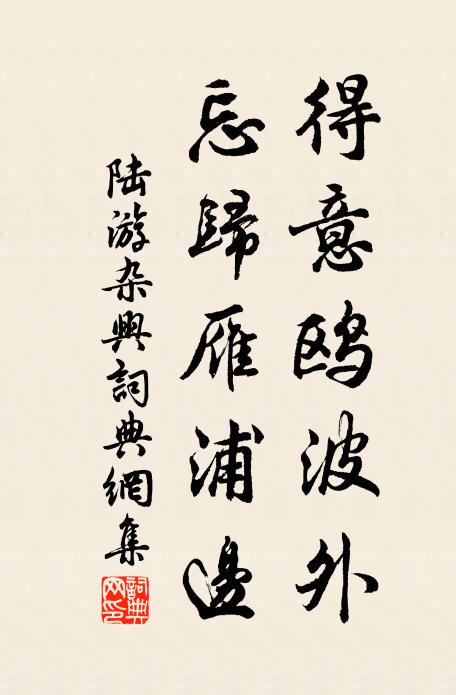 得意鸥波外
忘歸雁浦邊
陆游杂興詞典網集
詞典网印